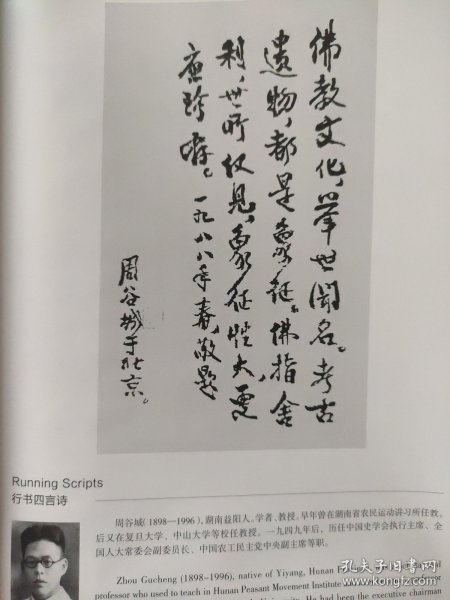 佛教文化，举世闻名。考古
遗物，都是象征。佛指舍
利，世所仅见，象征性大，更
应珍啫。一九八八年春，敬题
周谷城于北京。
Running Scripts
行书四言诗
周谷城（1898—1996），湖南益阳人。学者、教授。早年曾在湖南省农民运动讲习所任教，
后又在复旦大学、中山大学等校任教授。一九四九年后，历任中国史学会执行主席、全
国人大常委会副委员长、中国农工民主党中央副主席等职。
Zhou Gucheng (1898-1996), native of Yiyang, Hunan
professor who used to teach in Hunan Peasant Movement Institute
University. He had been the executive chairman
孔夫子旧书网